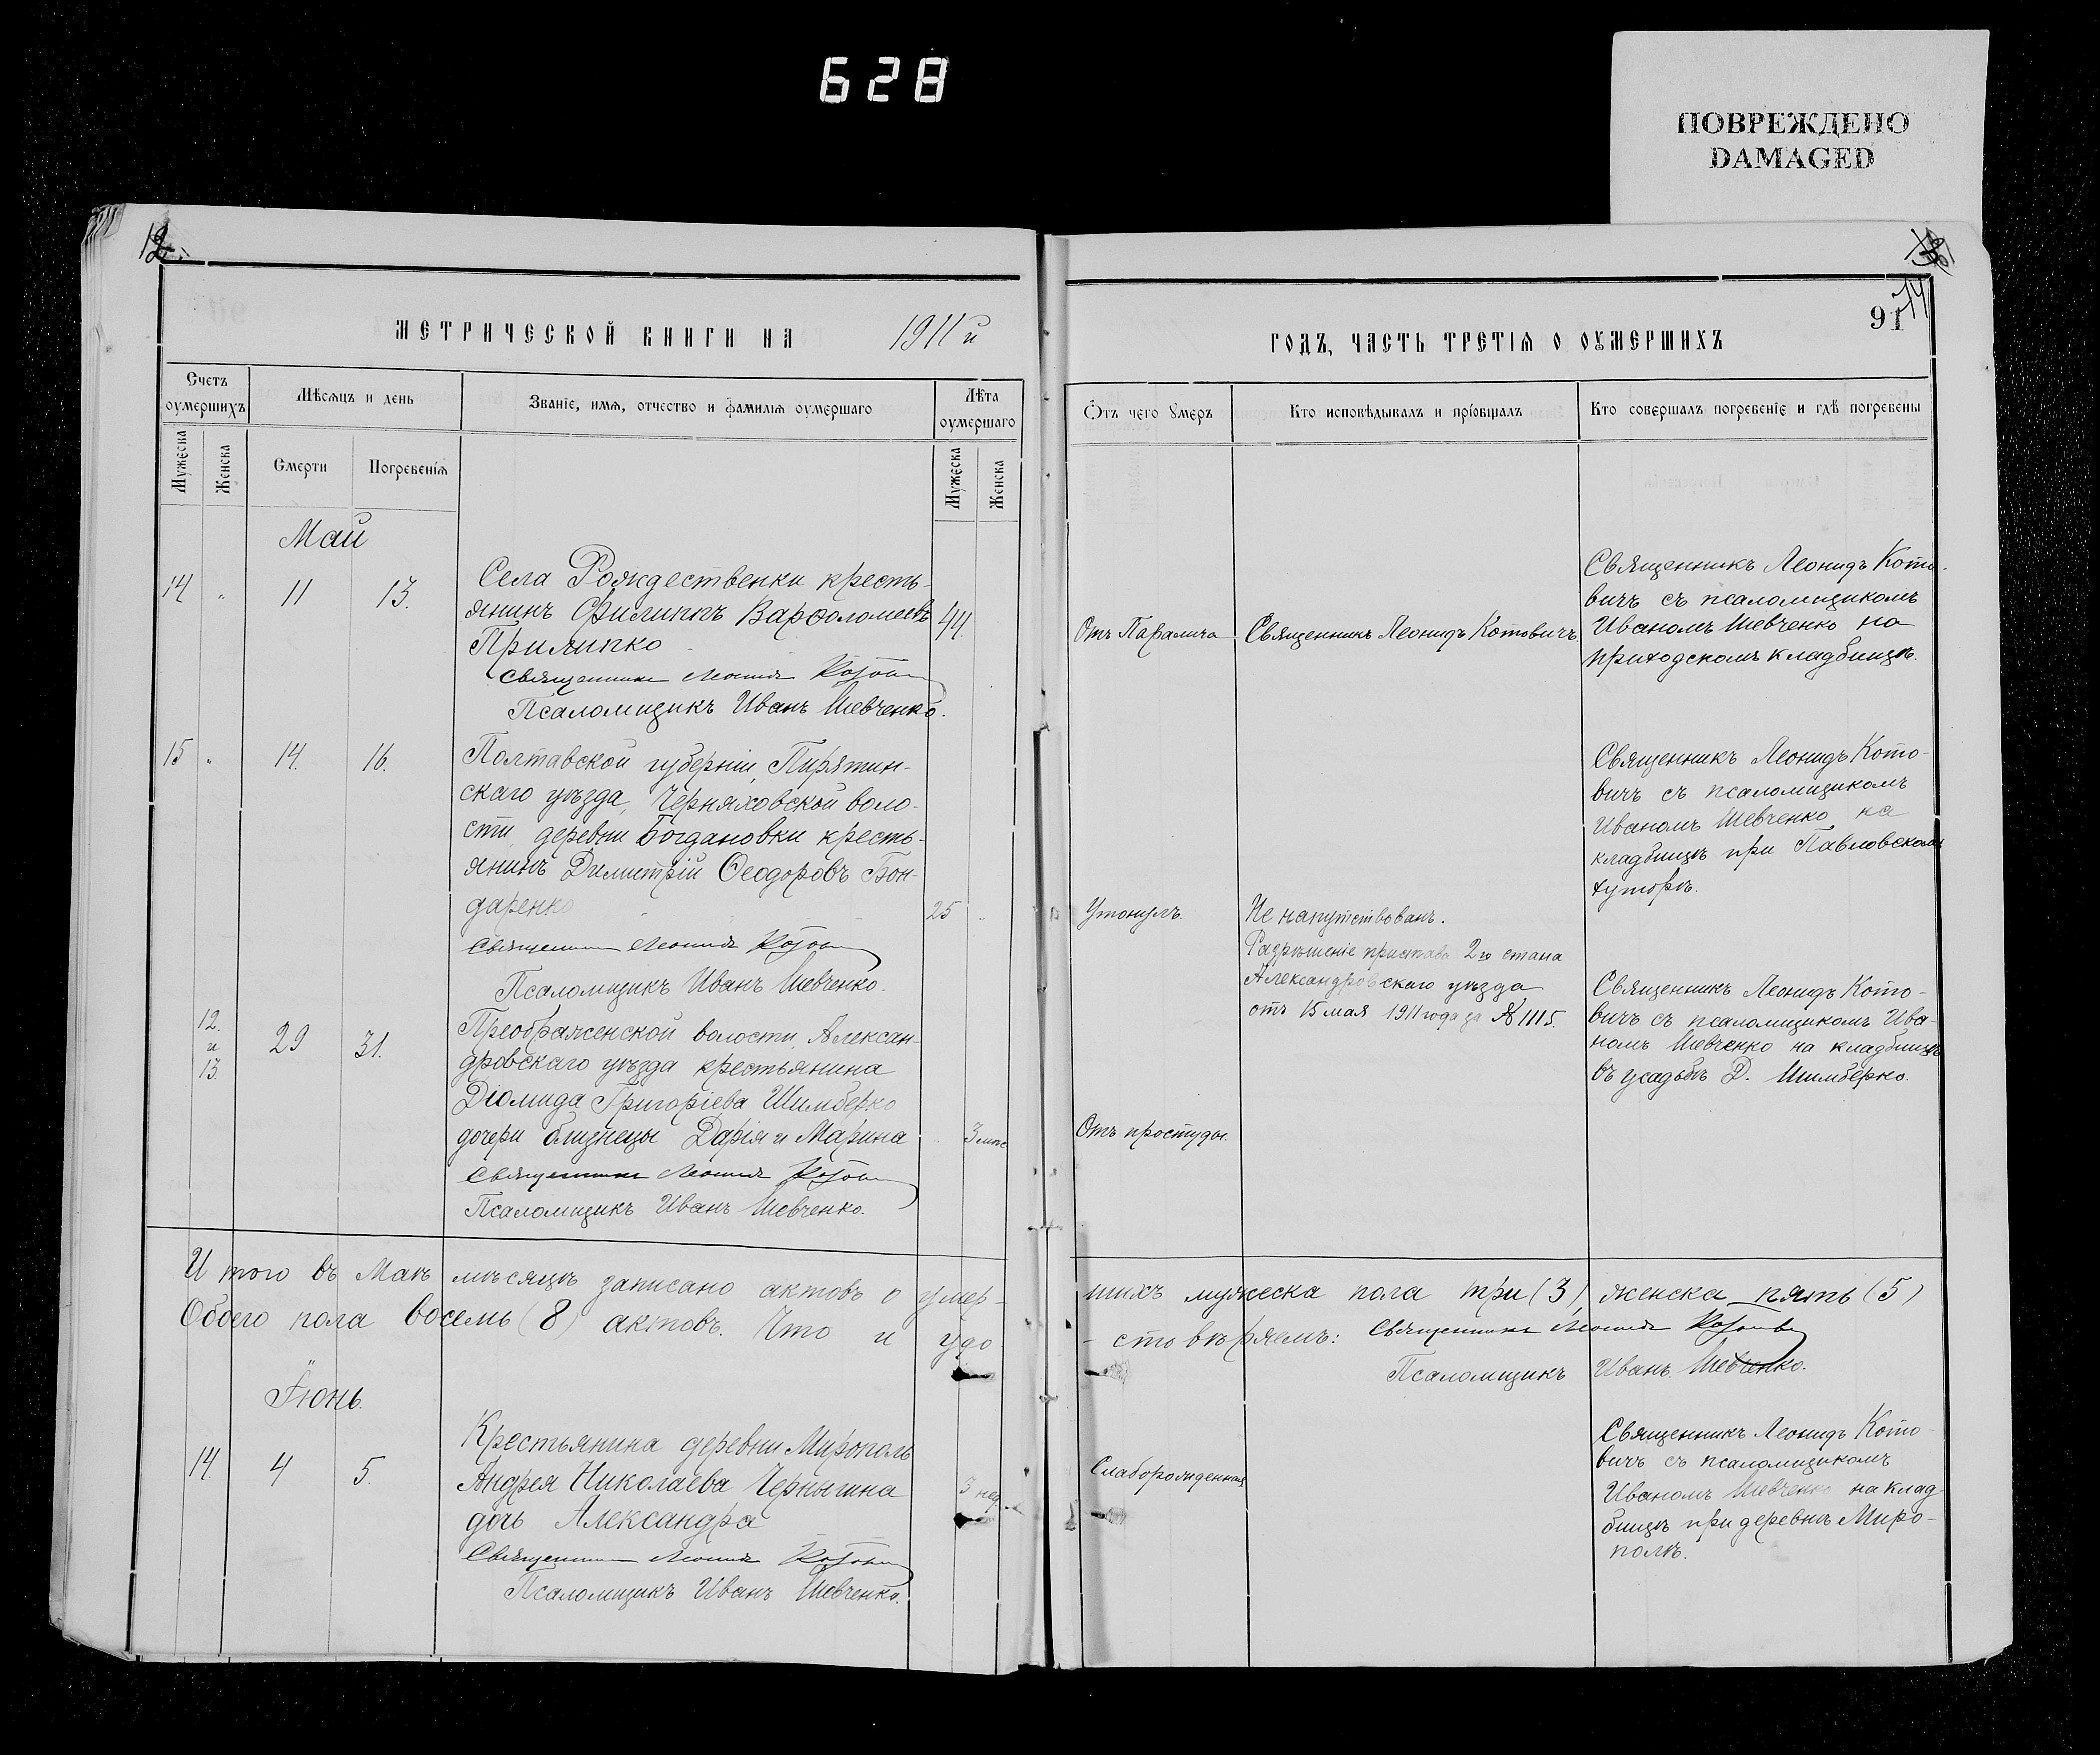 628
ПОВРЕЖДЕНО
DAMAGED
12.
91
МЕТРИЧЕСКОЙ КНИГИ НА 1911й
ГОДЪ, ЧАСТЬ ТРЕТІѦ О ОУМЕРШИХЪ
Счетъ оумершихъ
Мѣсѧцъ и день
Званіе, имѧ, отчество и фамиліѧ оумершаго
Лѣта оумершаго
Ѿтъ чего ꙋмеръ
Кто исповѣдывалъ и пріѡбщалъ
Кто совершалъ погребеніе и гдѣ погребены
Мужеска
Женска
Смерти
Погребеніѧ
Мужеска
Женска
Май
14 " 11 13.
Села Рождественки кресть-
янинъ Филиппъ Варѳоломеевъ
Прилипко
44.
Священникъ Леонидъ Котович
Псаломщикъ Иванъ Шевченко.
Отъ Паралича
Священникъ Леонидъ Котовичъ
Священникъ Леонидъ Кото-
вичъ съ псаломщикомъ
Иваномъ Шевченко на
приходскомъ кладбищѣ.
15 " 14. 16.
Полтавской губерніи, Пирятин-
скаго уѣзда, Черняховской воло-
сти деревни Богдановки кресть-
янинъ Димитрій Ѳеодоровъ Бон-
даренко
25
Священникъ Леонидъ Котович
Псаломщикъ Иванъ Шевченко.
Утонулъ.
Не напутствованъ.
Разрѣшеніе пристава 2го стана
Александровскаго уѣзда
отъ 15 мая 1911 года за № 1115.
Священникъ Леонидъ Кото-
вичъ съ псаломщикомъ
Иваномъ Шевченко на
кладбищѣ при Павловскомъ
хуторѣ.
12.
и
13.
29 31.
Преображенской волости, Алексан-
дровскаго уѣзда крестьянина
Діомида Григоріева Шимберко
дочери близнецы Дарія и Марина
3 мѣс
Священникъ Леонидъ Котович
Псаломщикъ Иванъ Шевченко.
Отъ простуды.
Священникъ Леонидъ Кото-
вичъ съ псаломщикомъ Ива-
номъ Шевченко на кладбищѣ
въ усадьбѣ Д. Шимберко.
Итого въ Маѣ мѣсяцѣ записано актовъ о умер-
шихъ мужеска пола три (3), женска пять (5)
Обоего пола восемь (8) актовъ. Что и удо-
стовѣряемъ: Священникъ Леонидъ Котович
Псаломщикъ Иванъ Шевченко.
Іюнь.
14. 4 5.
Крестьянина деревни Мирополь
Андрея Николаева Чернышна
дочь Александра
3 нед.
Священникъ Леонидъ Котович
Псаломщикъ Иванъ Шевченко.
Слаборожденная
Священникъ Леонидъ Кото-
вичъ съ псаломщикомъ
Иваномъ Шевченко на клад-
бищѣ при деревнѣ Миро-
полѣ.